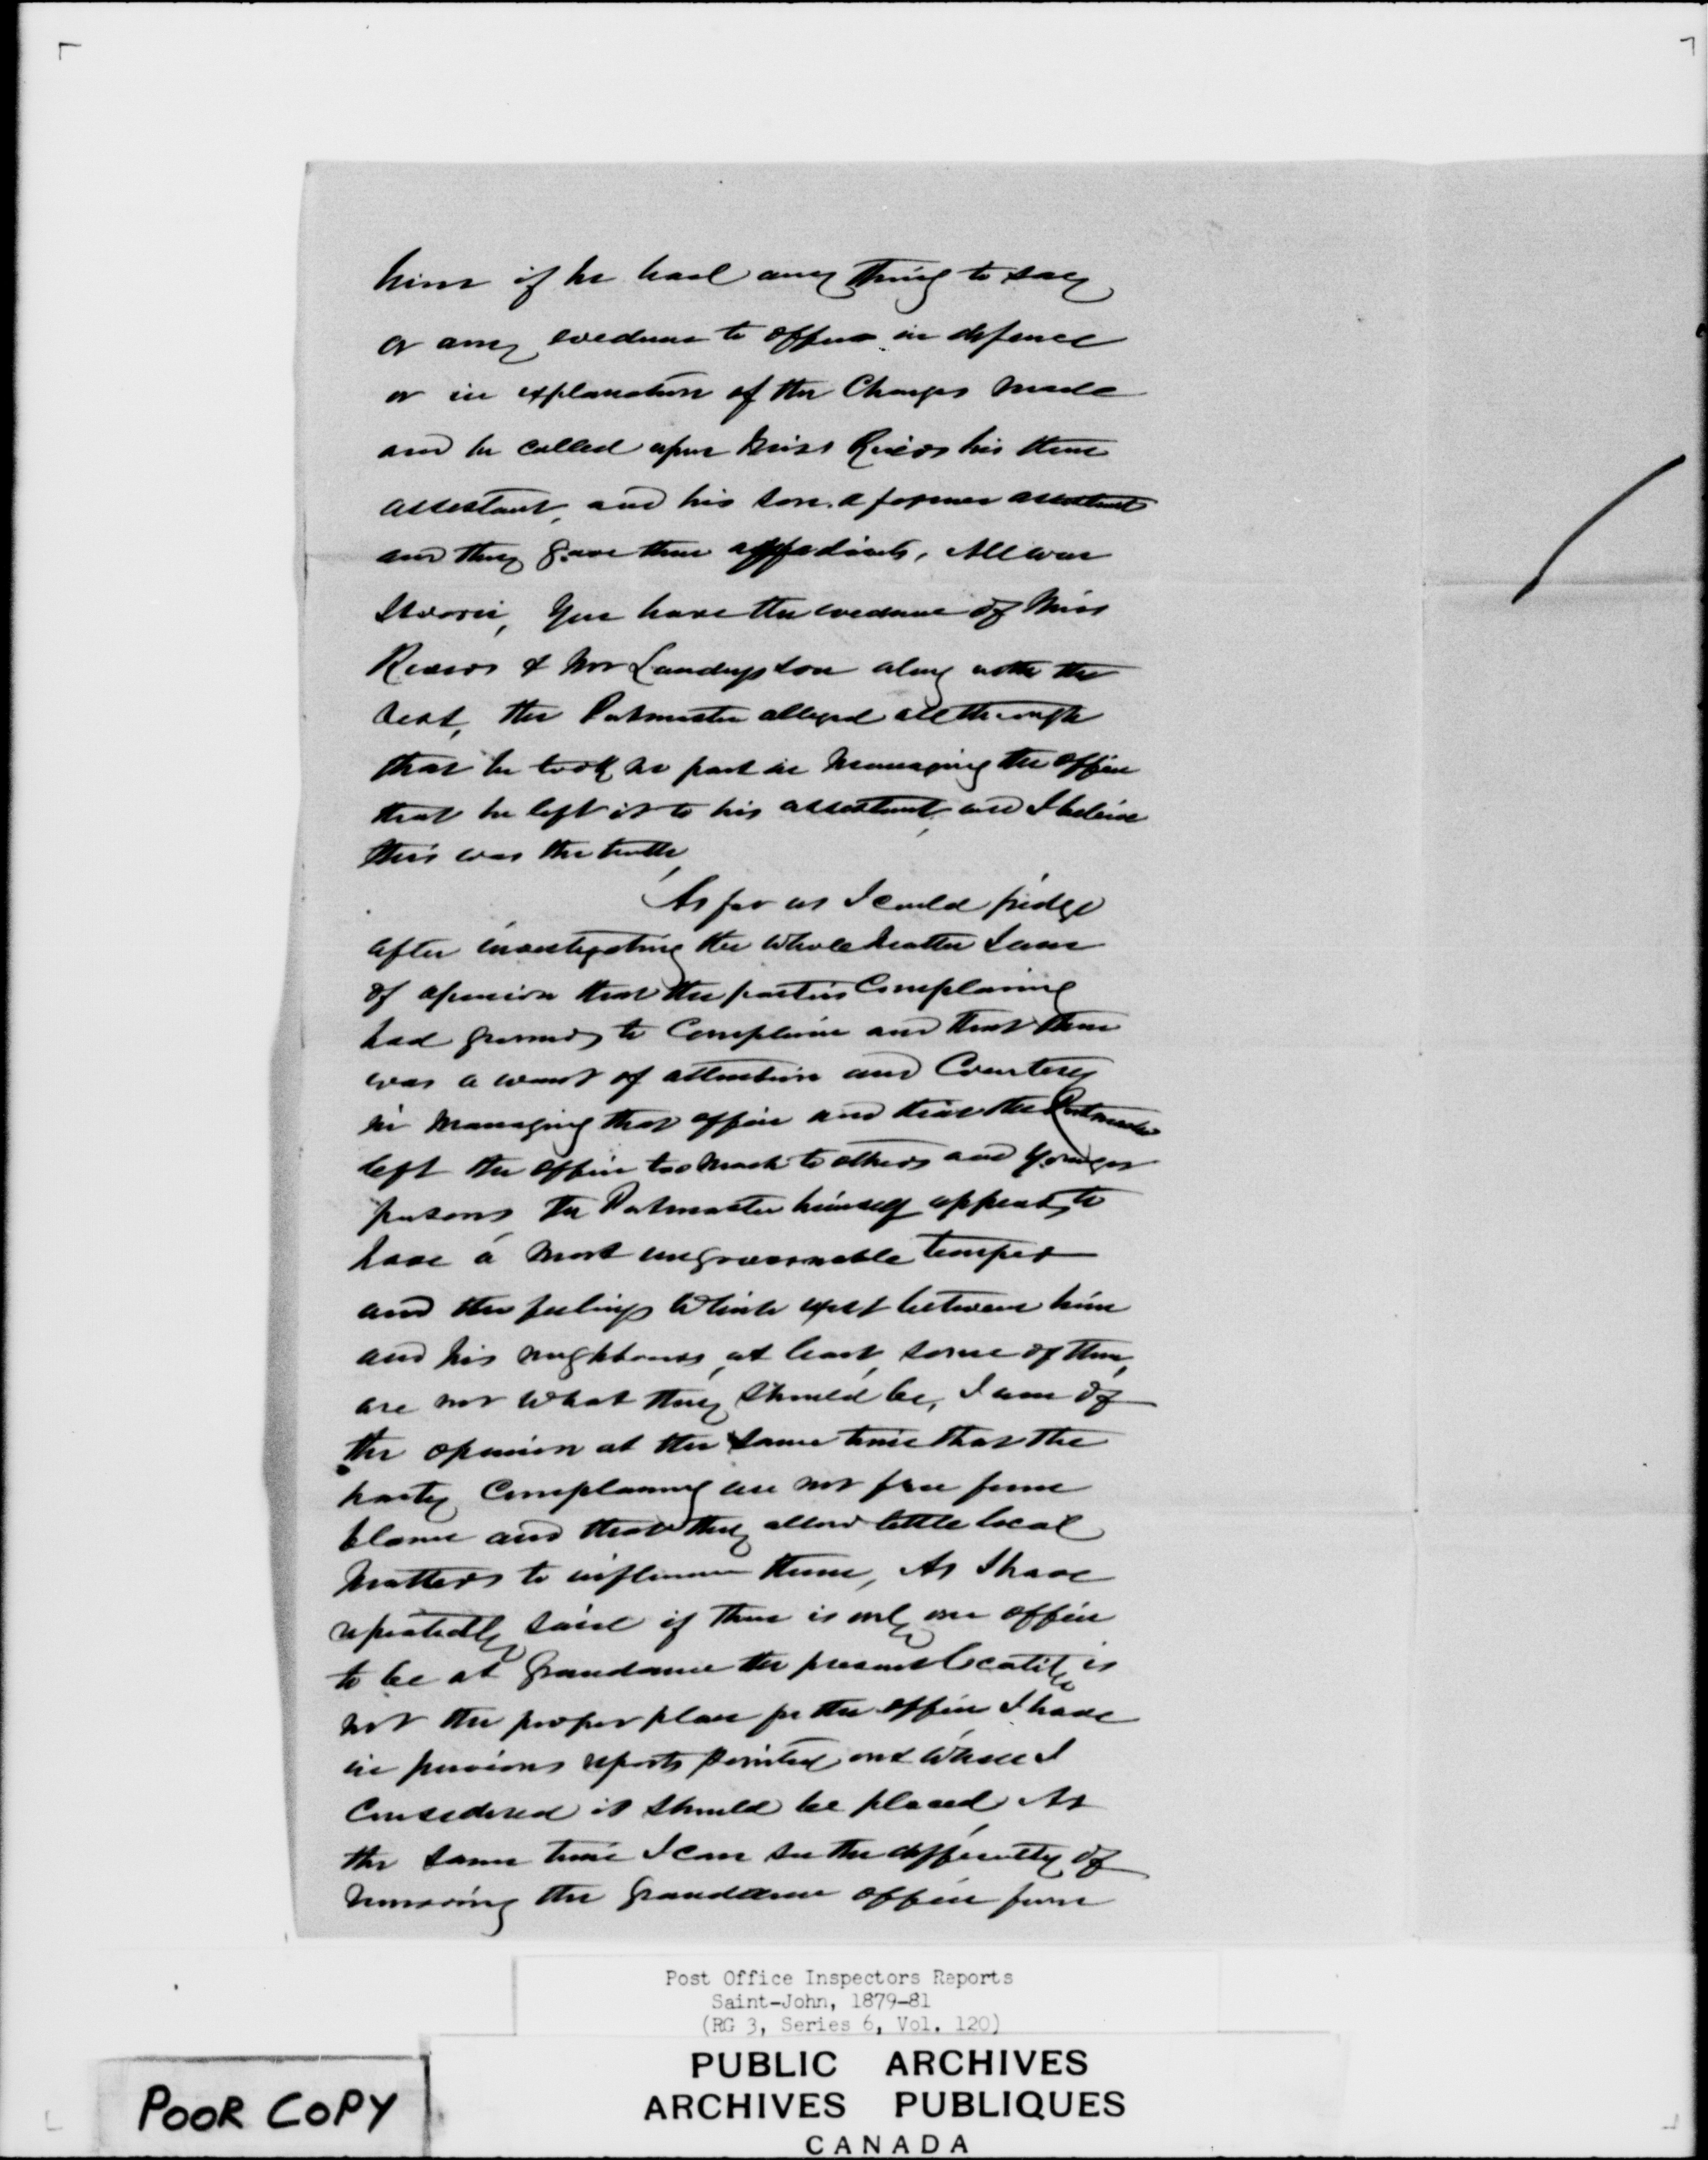 him if he had any thing to say
or any evedence to offer in defence
or in explanation of the Charges made
and he called upon Miss his then
assestant, and his son, a former assestant
and they gave their affadivits, All was
Sworn, You have the evedence of Miss
& Mr Landrys son along with the
rest, the Postmaster alleged all through
that he took no part in managing the office
that he left it to his assestant, and I believe
this was the truth,
As far as I could judge
after investigating the whole matter I am
of openion that the parties Complaining
had grounds to Complain and that there
was a want of attention and Courtesy
in managing that office and that the Postmaster
left the office too much to others and younger
persons, the Postmaster himself appears to
have a most temper
and the feelings which exist between him
and his neighbours, at least, some of them,
are not what they should be, I am of
the openion at the same time that the
party Complaining are not free from
blame and that they allow little local
matters to influence them, As I have
repeatedly said if there is only one office
to be at Grandance the present locality is
not the proper place for the office I have
in previous reports pointed out where I
Considered it should be placed, At
the same time I can see the difficulty of
removing the Grandance office from
Post Office Inspectors Reports
Saint-John, 1879-81
(RG 3, Series 6, Vol. 120)
PUBLIC ARCHIVES
ARCHIVES PUBLIQUES
CANADA
POOR COPY